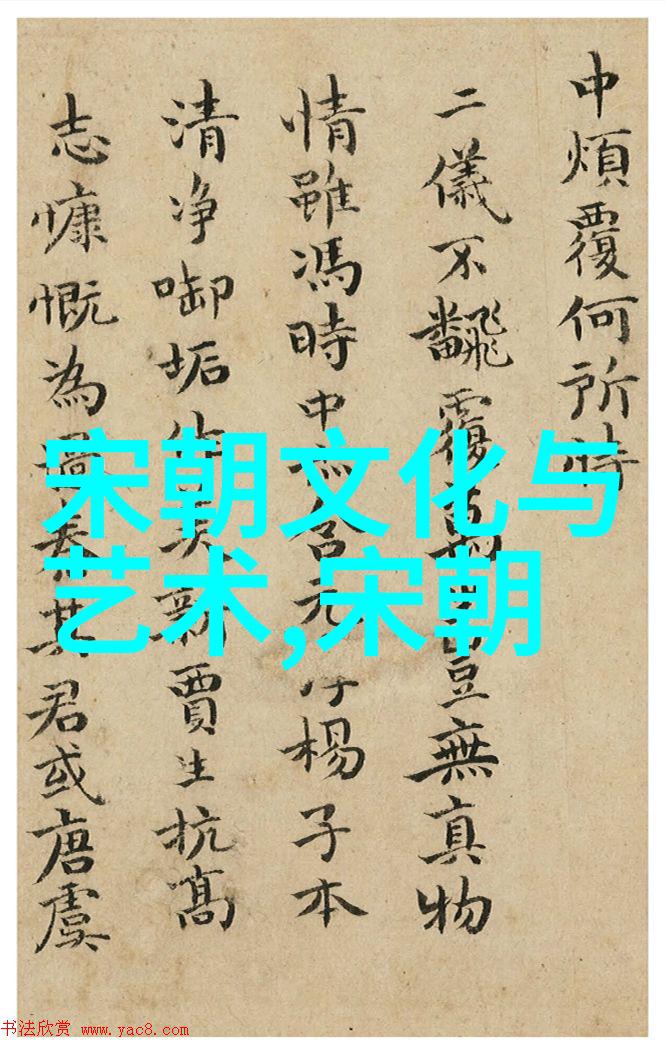 中煩覆何所恃
二儀不飜覆萬豆無真物
情雖馮時中含元楊子本
清净啣垢美新賈生抗高
志慷慨為其君或唐虞
宋朝文化与
艺术,宋朝
书法欣赏 www.yac8.com